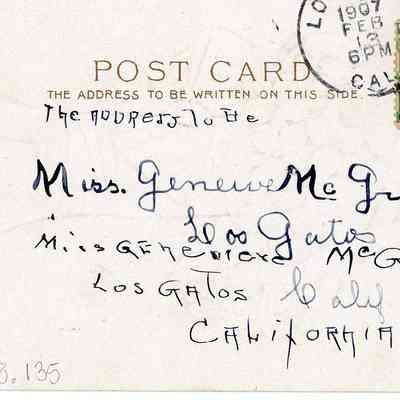 LO
1907
FEB
12
6PM
CAL
POST CARD
THE ADDRESS TO BE WRITTEN ON THIS SIDE.
THE ADDRESS TO BE
Miss. Genevieve Mc Gr
Los Gatos
Miss GENEVIEVE McG
LOS GATOS Calif
CALIFORNIA
3.135